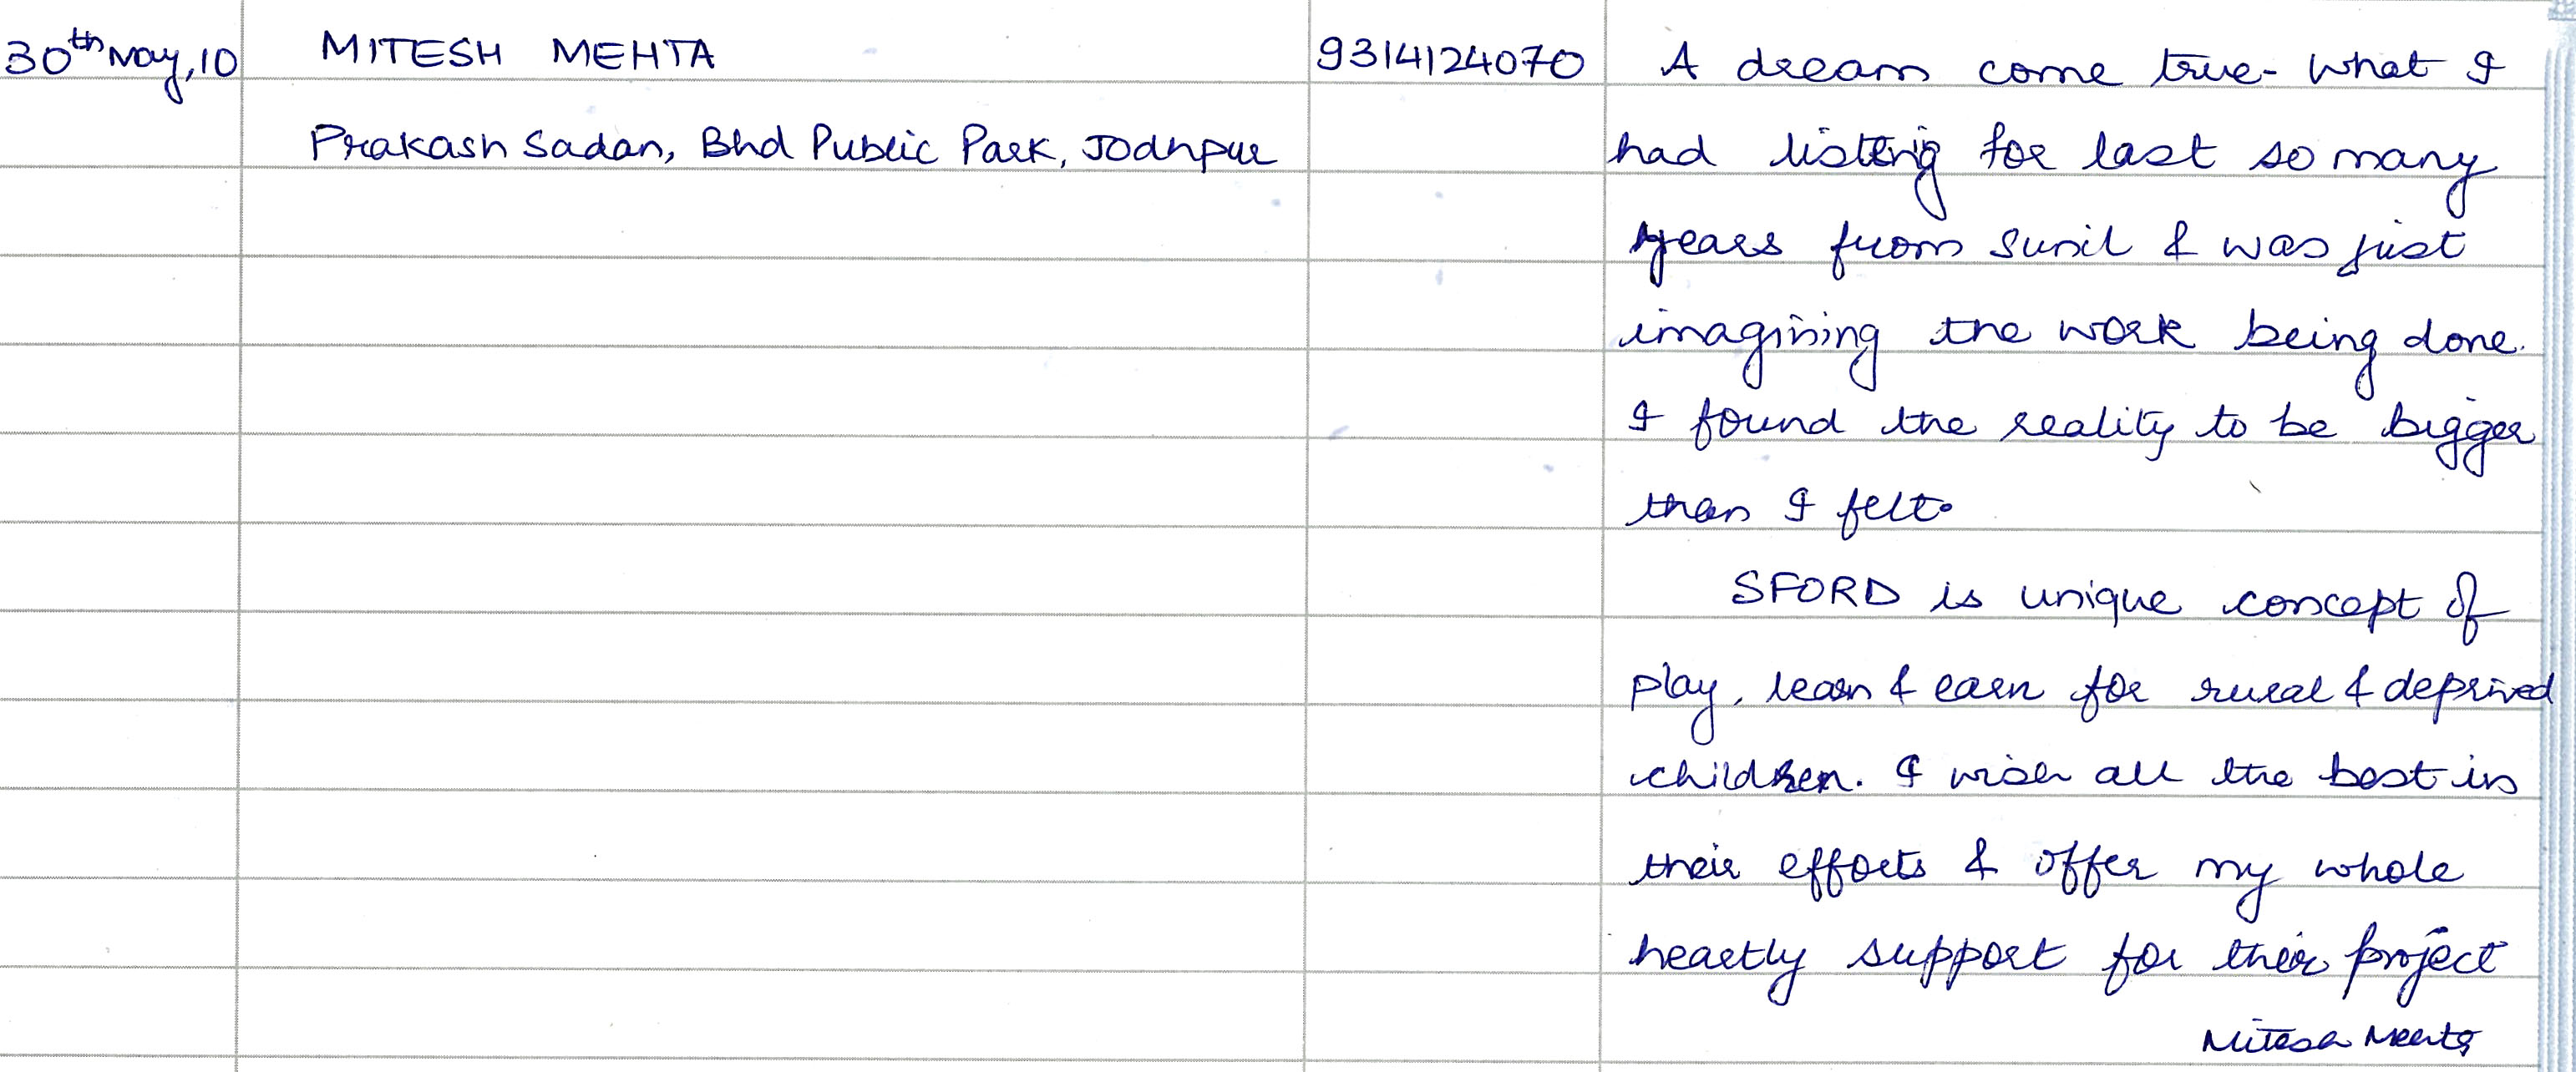 30th May, 10 MITESH MEHTA 9314124070 A dream come true - what I
Prakash Sadan, Bhd Public Park, Jodhpur had listing for last so many
years from Sunil & was just
imagining the work being done.
I found the reality to be bigger
than I felt.
SFORD is unique concept of
play, learn & earn for rural & deprived
children. I wish all the best in
their efforts & offer my whole
heartly support for their project
Mitesh Mehta